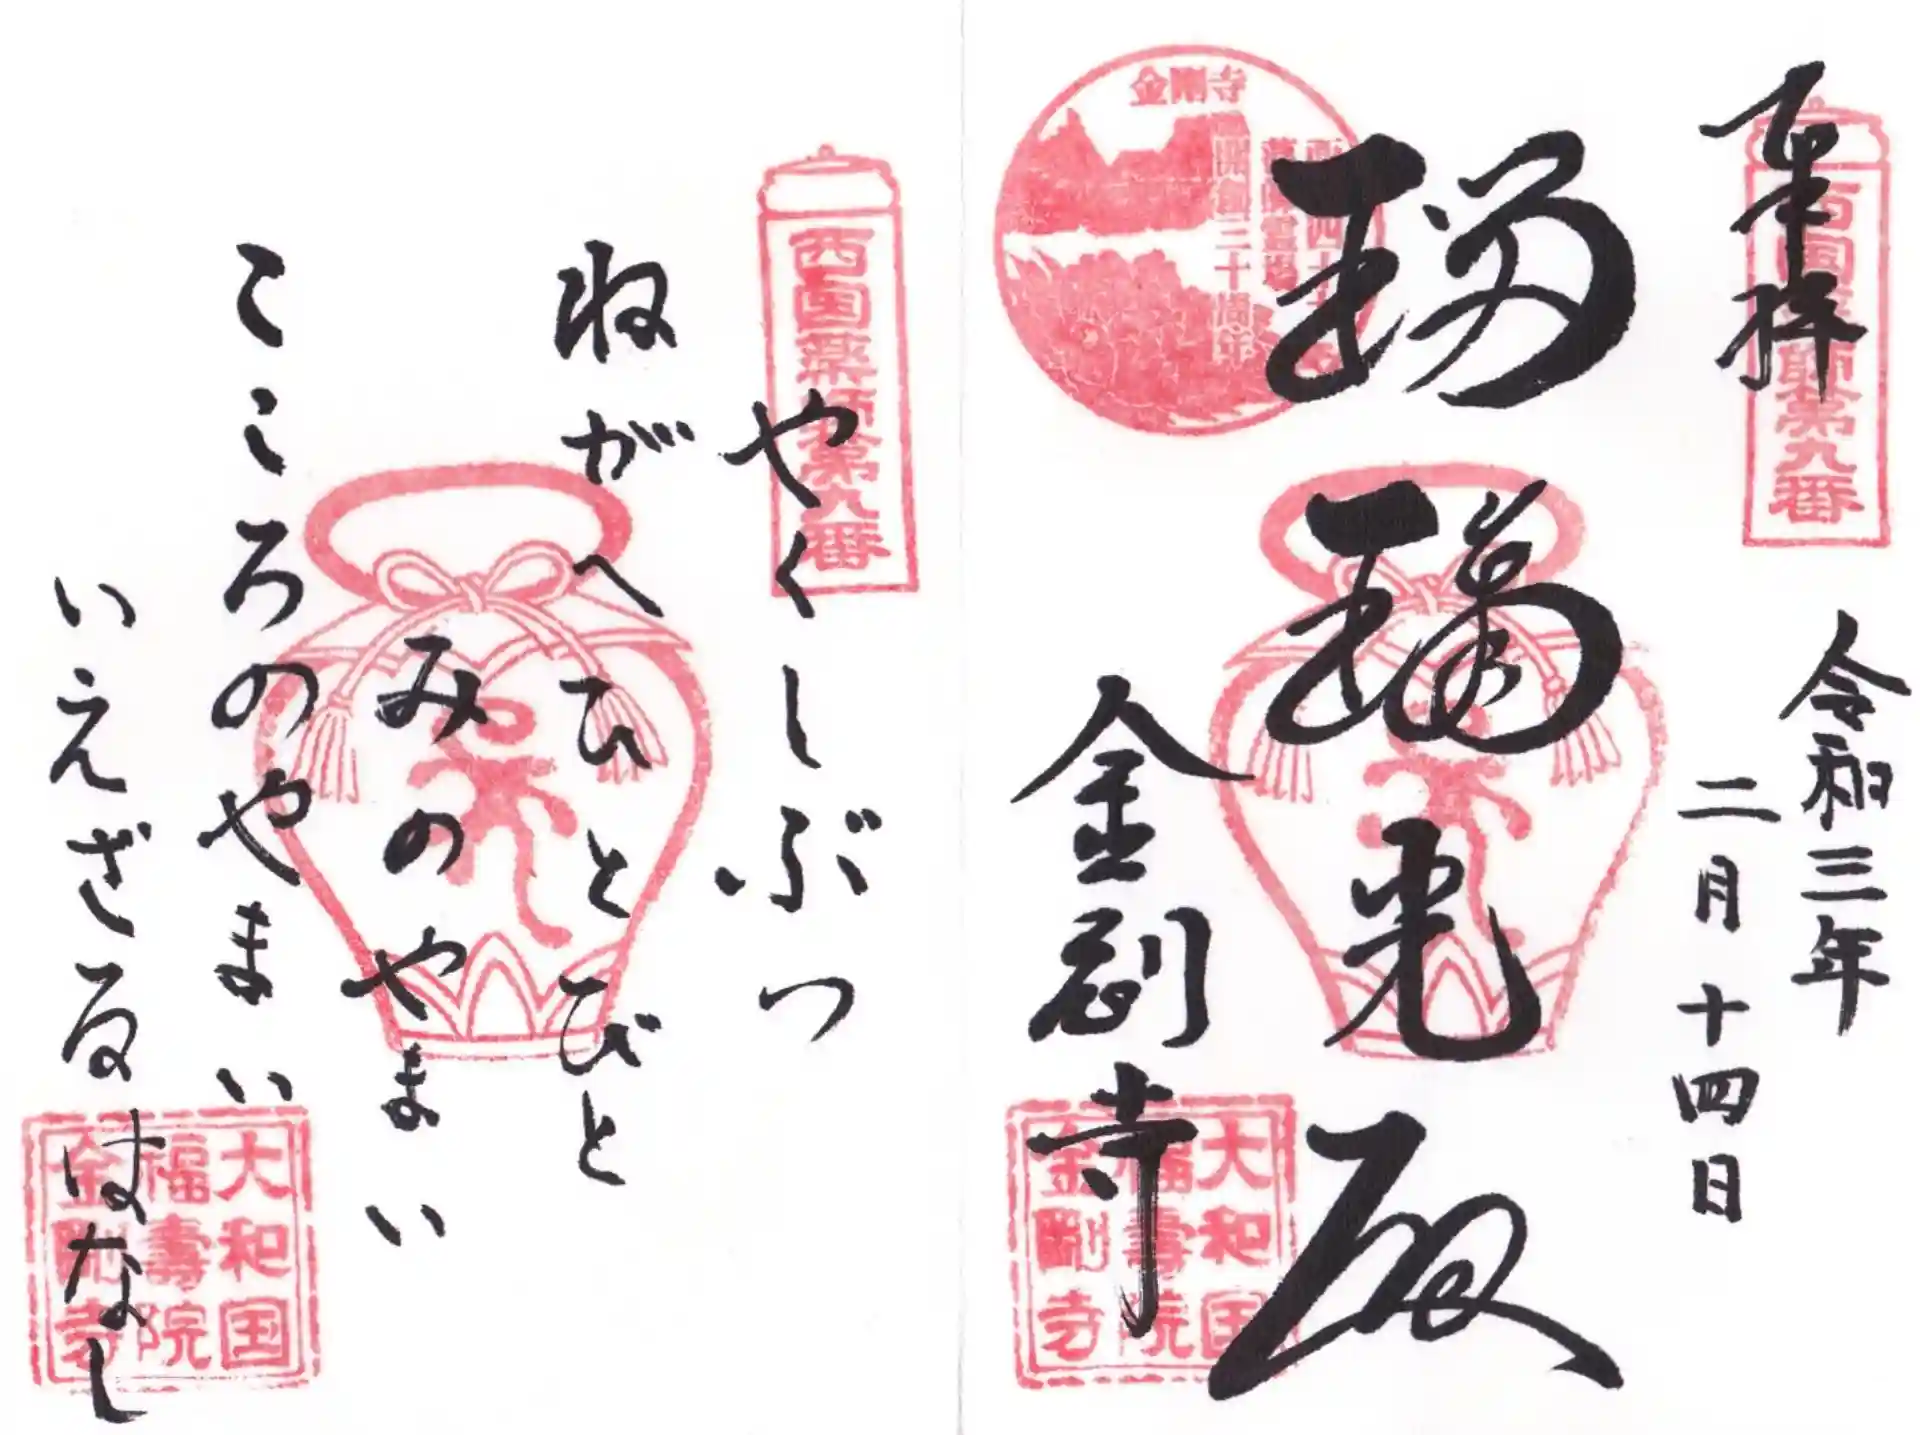 奉拝
西国薬師第九番
令和三年
二月十四日
瑠璃光殿
金剛寺
金剛寺
西国四十九
薬師霊場
開創三十周年
大和国
福壽院
金剛寺
西国薬師第九番
やくしぶつ
ねがへひとびと
みのやまい
こころのやまい
いえざるはなし
大和国
福壽院
金剛寺